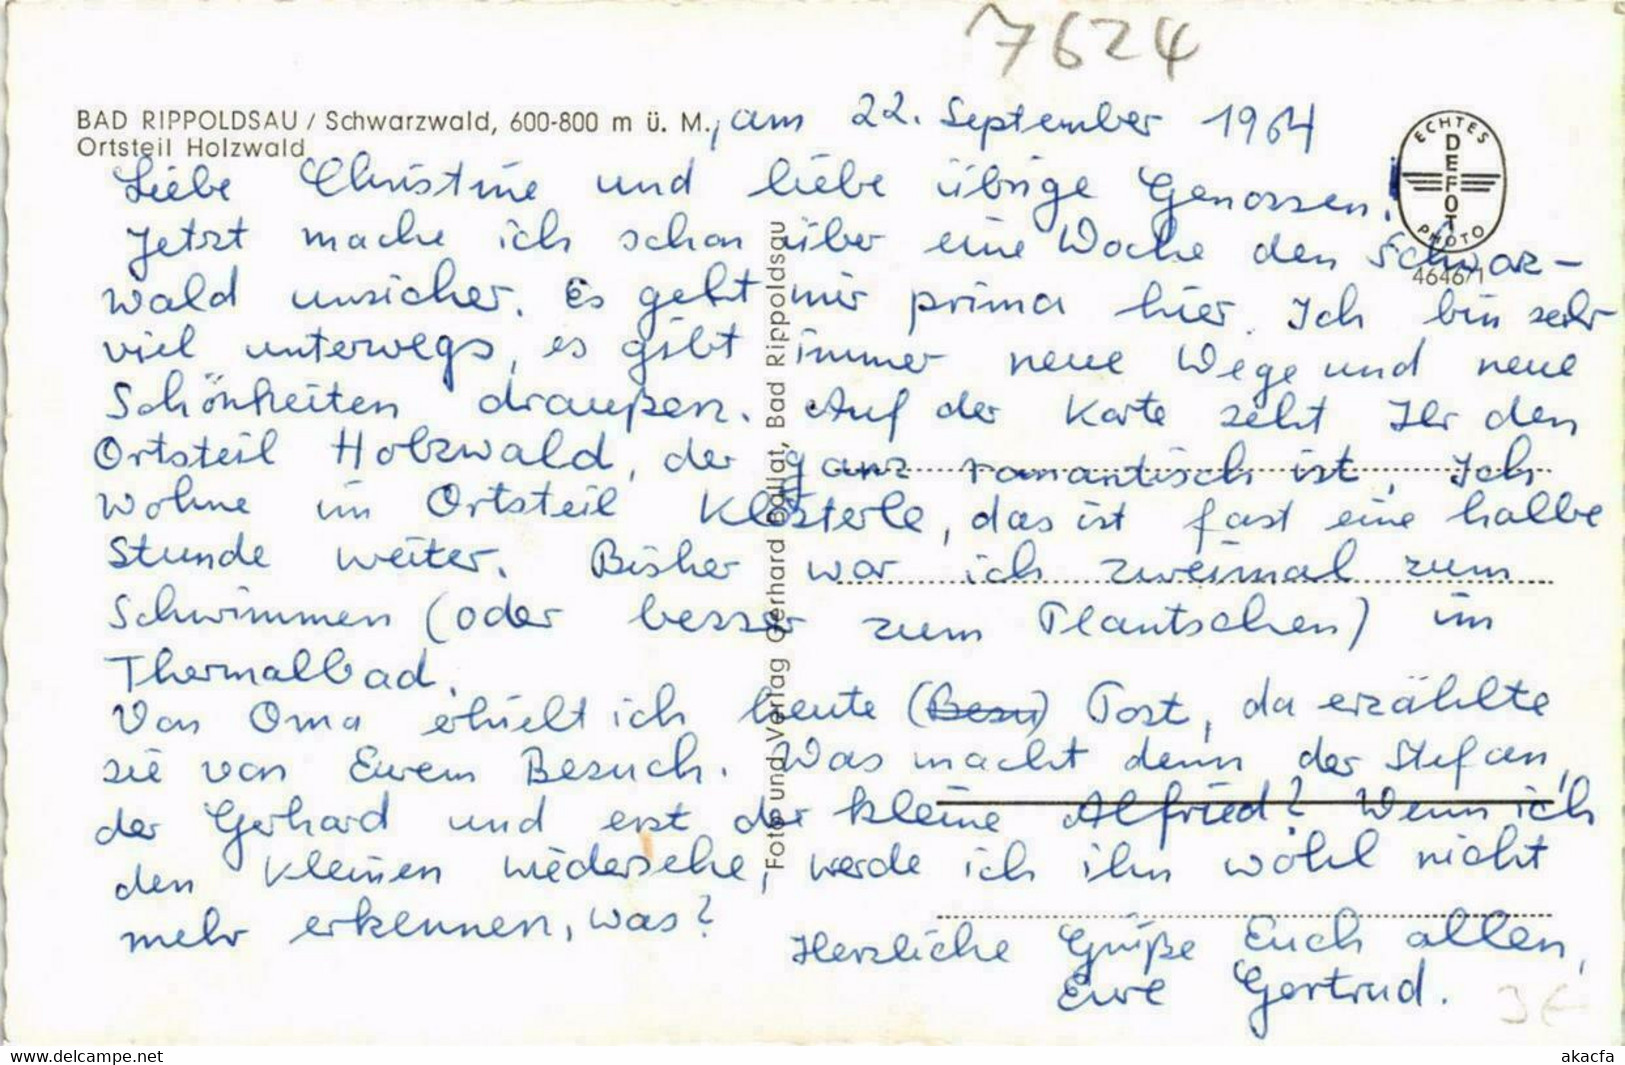 7624
BAD RIPPOLDSAU / Schwarzwald, 600-800 m ü. M., am 22. September 1964
Ortsteil Holzwald
ECHTES
DEFOT
PHOTO
4646/1
Liebe Christine und liebe übrige Genossen!
Jetzt mache ich schon über eine Woche den Schwarz-
wald unsicher. Es geht mir prima hier. Ich bin sehr
viel unterwegs, es gibt immer neue Wege und neue
Schönheiten draußen. Auf der Karte seht Ihr den
Ortsteil Holzwald, der ganz romantisch ist. Ich
wohne im Ortsteil Klösterle, das ist fast eine halbe
Stunde weiter. Bisher war ich zweimal zum
Schwimmen (oder besser zum Plantschen) im
Thermalbad.
Von Oma erhielt ich heute (Besu) Post, da erzählte
sie von Eurem Besuch. Was macht denn der Stefan,
der Gerhard und erst der kleine Alfried? Wenn ich
den kleinen wiedersehe, werde ich ihn wohl nicht
mehr erkennen, was?
Herzliche Grüße Euch allen,
Eure Gertrud.
Foto und Verlag Gerhard Ballat, Bad Rippoldsau
3€
akacfa
https://www.delcampe.net